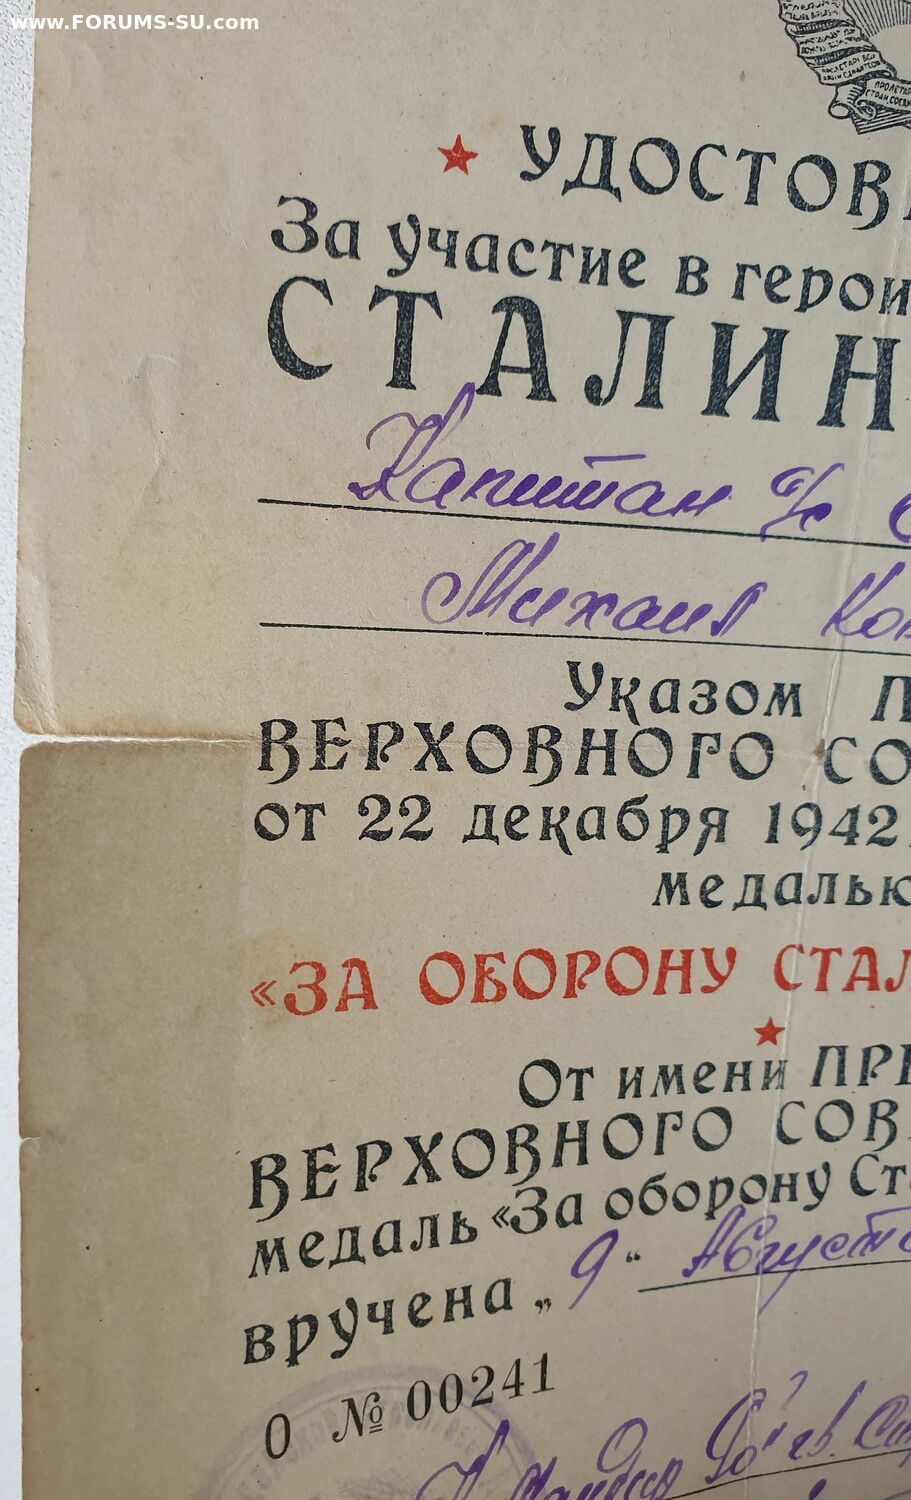 www.FORUMS-SU.com
★ УДОСТОВ
За участие в герои
СТАЛИН
Капитан а/с
Михаил Кон
Указом П
ВЕРХОВНОГО СО
от 22 декабря 1942
медалью
«ЗА ОБОРОНУ СТАЛ
★
От имени ПРЕ
ВЕРХОВНОГО СОВ
медаль «За оборону Ст
вручена „9“ Августа
О № 00241